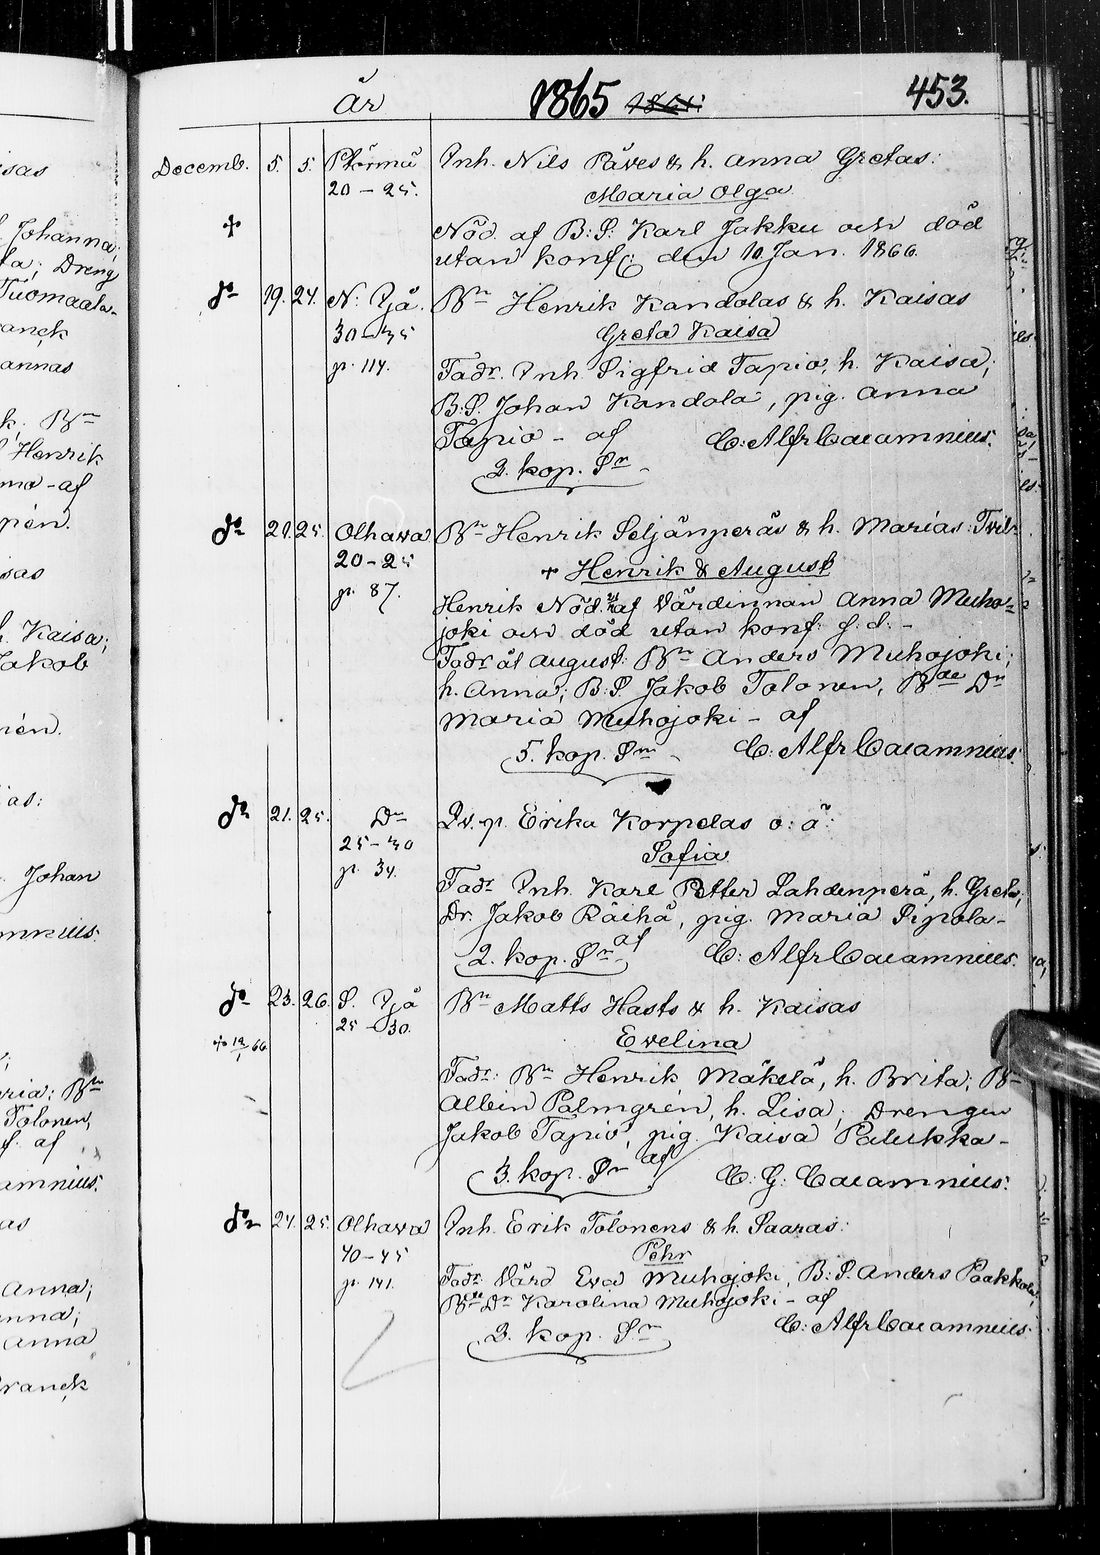 år 1865 1864: 453.
Decemb. 5. 5. Pkörmü Inh. Nils Päves & h. Anna Gretas:
20-25. Maria Olga
+ Nöd. af B:S: Karl Jakku och död
utan konf: den 10 Jan. 1866.
do 19. 24. N: Ijå Bn Henrik Kandolas & h. Kaisas
30-35 Greta Kaisa
p. 114. Fadr. Inh. Sigfrid Tapio, h. Kaisa;
B.S. Johan Kandola, pig. Anna
Tapio - af C: Alfr Calamnius.
2. kop. Sr
do 20. 25. Olhava Bn Henrik Seljänperäs & h. Marias: Tvil-
20-25 + Henrik & August
p. 87. Henrik Nöd. af Värdinnan Anna Muho-
joki och död utan konf: f. d. -
Fadr åt August: Bn Anders Muhojoki;
h. Anna; B.S. Jakob Tolonen, Bde Dr
Maria Muhojoki - af
5. kop. Sr C: Alfr Calamnius.
do 21. 25. Do Qv. p. Erika Korpelas o: ä:
25-30 Sofia
p. 34. Fadr Inh. Karl Petter Lahdenperä, h. Greta;
Dr. Jakob Räihä, pig. Maria Sipola -
2. kop. Sr af C: Alfr Calamnius.
do 23. 26. S. Ijå Bn Matts Hasts & h. Kaisas
+ 12/1 66 25-30. Evelina
Fadr: Bn Henrik Mäkelä, h. Brita; Bn
Albin Palmgrén, h. Lisa; Drengen
Jakob Tapio, pig. Kaisa Palukka -
3. kop. Sr af C: G: Calamnius.
do 24. 25. Olhava Inh. Erik Tolonens & h. Saaras:
40-45 Pehr
p. 141. Fadr Värd Eva Muhojoki, B:S. Anders Paakkola,
Bde Dr Karolina Muhojoki - af
3. kop. Sr C: Alfr Calamnius.